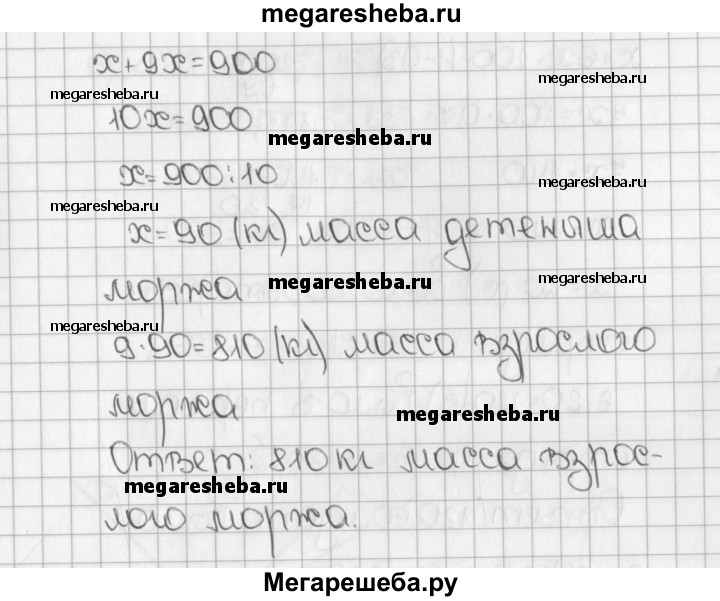 megaresheba.ru
x+9x=900
megaresheba.ru
megaresheba.ru
10x=900
megaresheba.ru
x=900:10
megaresheba.ru
megaresheba.ru
x=90 (кг) масса детеныша
megaresheba.ru
megaresheba.ru
моржа
megaresheba.ru
9·90=810 (кг) масса взрослого
моржа
megaresheba.ru
Ответ: 810 кг масса взрос-
megaresheba.ru
лого моржа.
Мегарешеба.ру